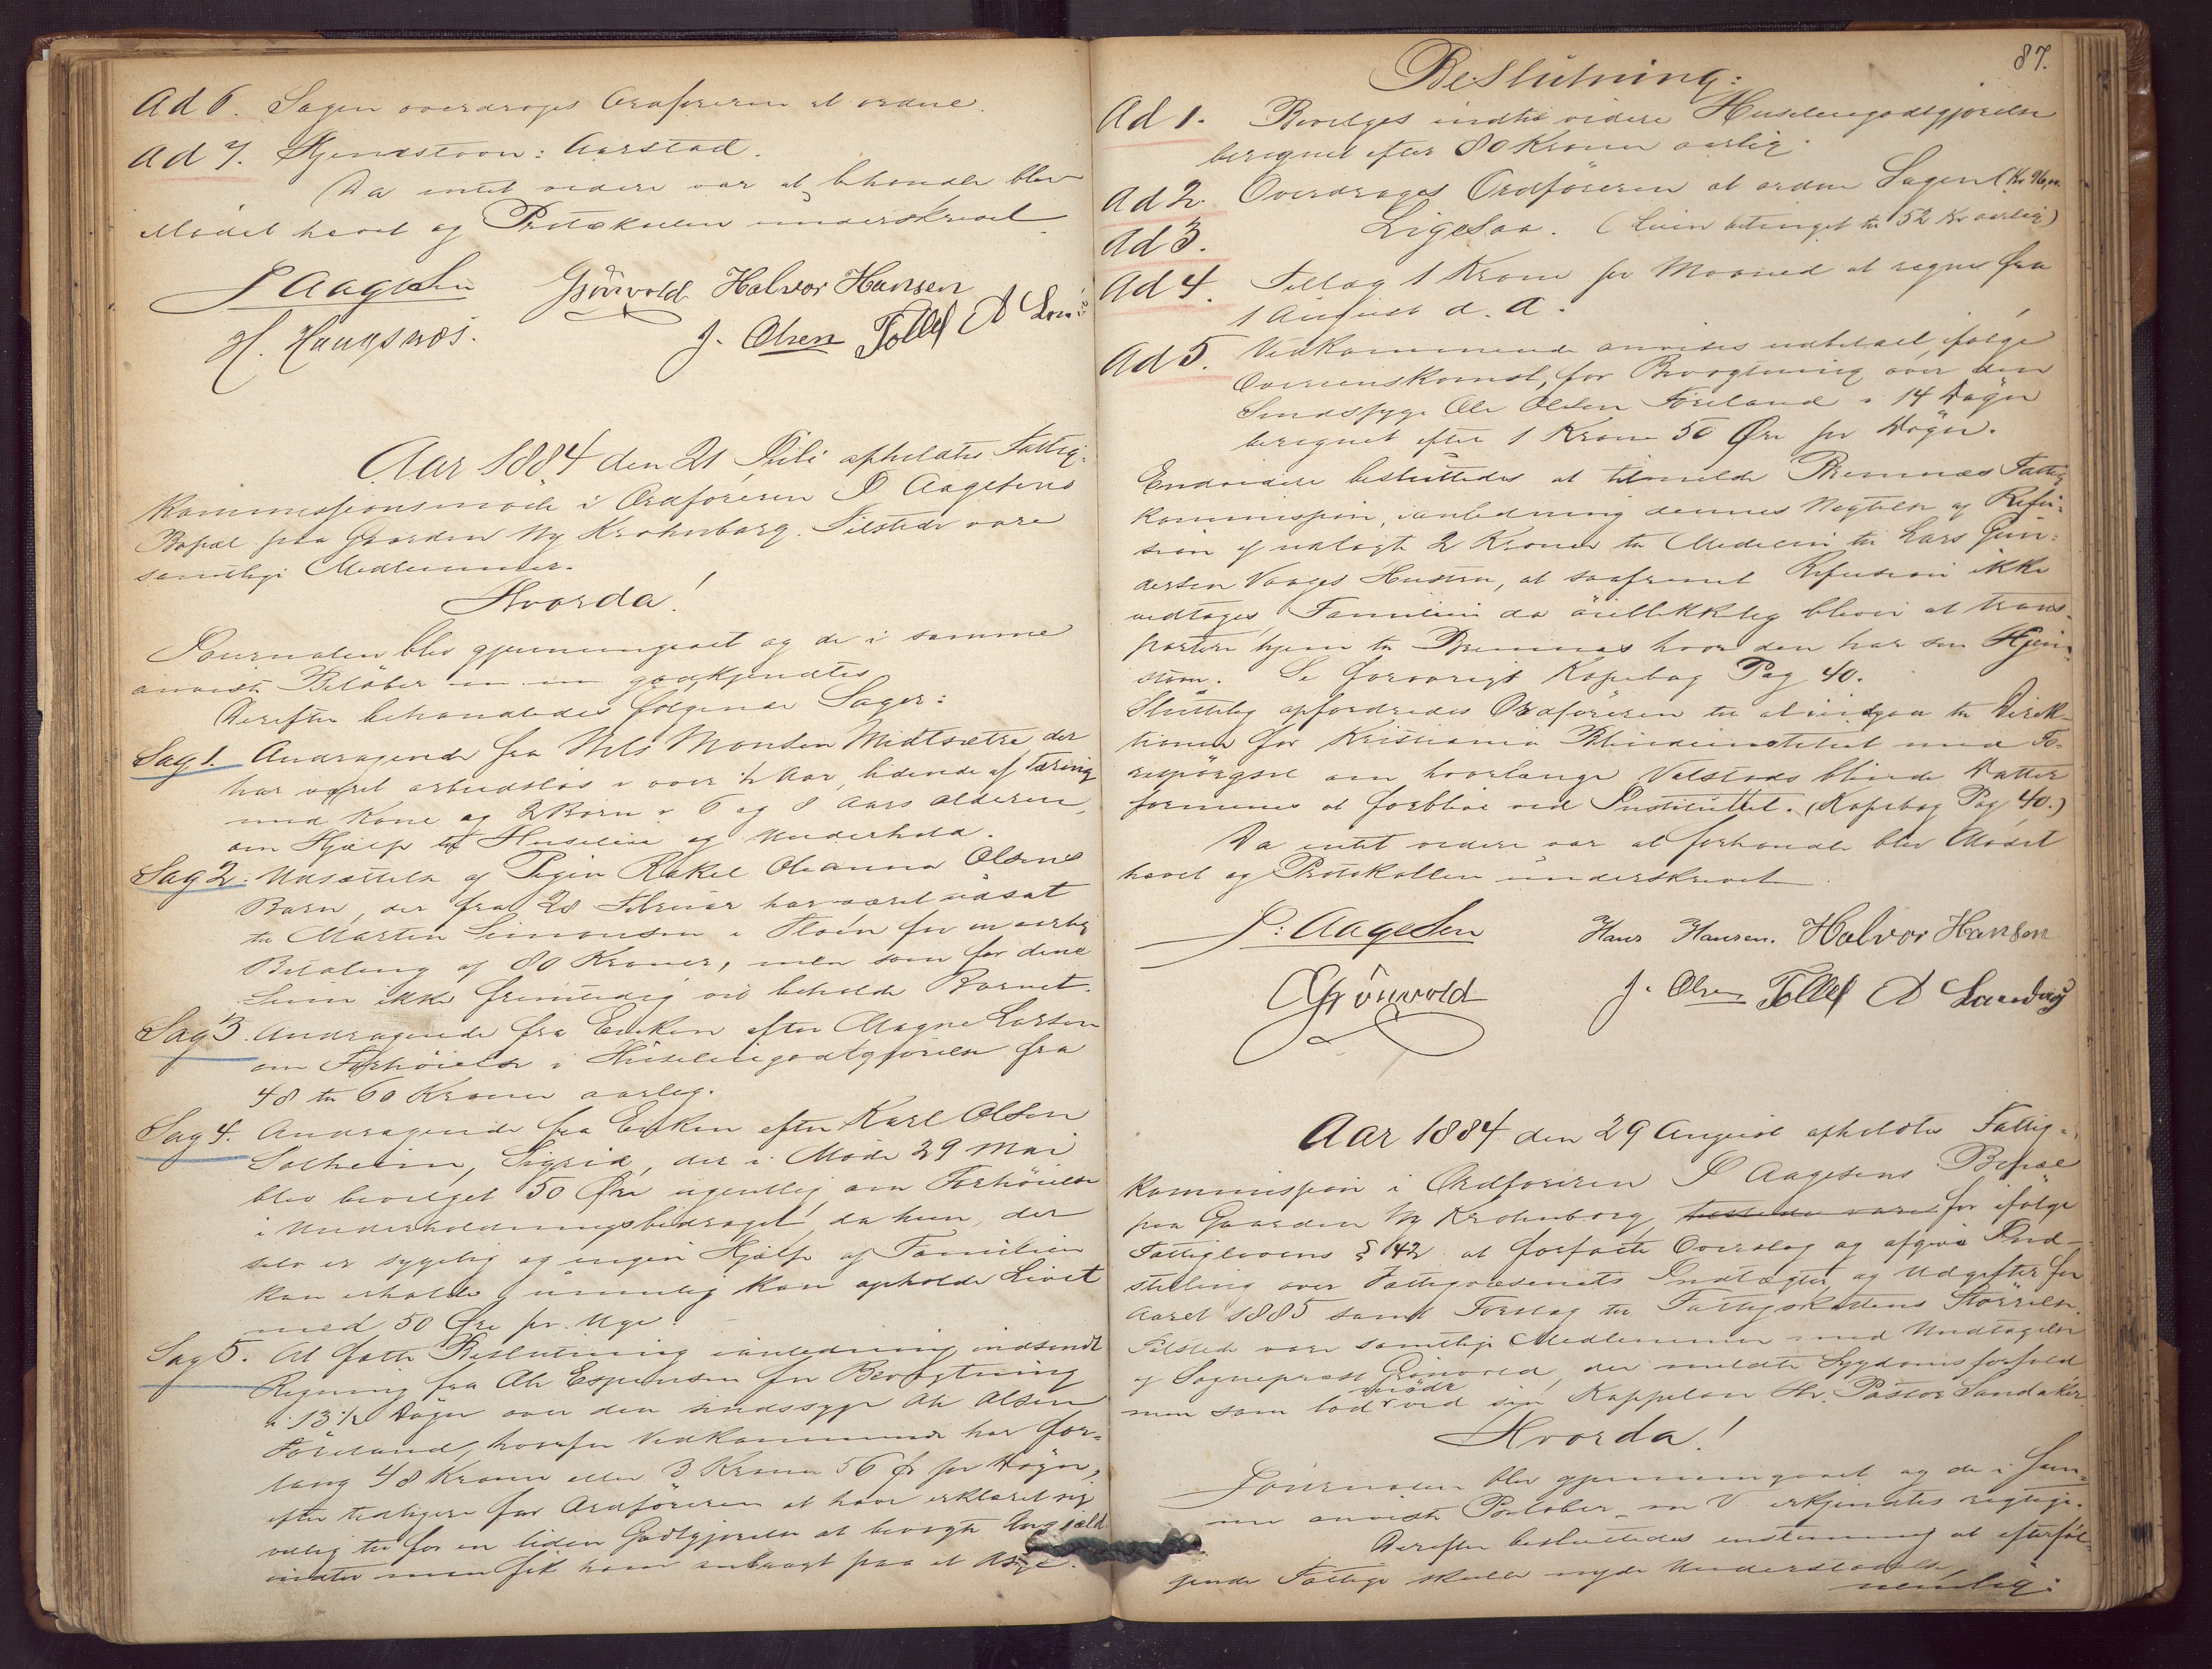 Ad 6. Sagen overdroges Ordføreren at ordne.
Ad 7. Hjemstavn: Aarstad.
Da intet videre var at behandle blev
Mødet hævet og Protokollen underskrevet
P Aagesen Grönvold Halvor Hansen
H. Haugsnæs. J. Olsen Tollef A
Aar 1884 den 21 Juli afholdtes Fattig-
kommissionsmøde i Ordføreren P Aagesens
Bopæl paa Gaarden Ny Krohnborg. Tilstede vare
samtlige Medlemmer.
Hvorda!
Journalen blev gjennemgaaet og de i samme
anviste Beløber godkjendtes
Derefter behandledes følgende Sager:
Sag 1. Andragende fra Nils Monsen Midtsætre, der
har været arbeidsløs i over ½ Aar, lidende af Tæring
med Kone og 2 Børn i 6 og 8 Aars Alderen,
om Hjælp til Husleie og Underhold.
Sag 2. Udsættelse af Pigen Rakel Oleanna Olsens
Barn, der fra 28 Februar har været udsat
til Martin Simonsen i Floen for en aarlig
Betaling af 80 Kroner, men som for dene
Leien ikke fremtidig vil beholde Barnet.
Sag 3. Andragende fra Enken efter Magne Larsen
om Forhøielse i Huusleiegodtgjørelse fra
48 til 60 Kroner aarlig.
Sag 4. Andragende fra Enken efter Karl Olsen
Solheim, Sigrid, der i Møde 29 Mai
blev bevilget 50 Øre ugentlig om Forhøielse
i Underholdningsbidraget, da hun, der
selv er sygelig og ingen Hjælp af Familien
kan erholde, umulig kan opholde Livet
med 50 Øre pr. Uge.
Sag 5. At fatte Beslutning ianledning indsendt
Regning fra Ole Espensen for Bevogtning
i 13½ Døgn over den sindssyge Ole Olsen
Föreland, hvorfor Vedkommende har for-
langt 48 Kroner eller 3 Kroner 56 Ør pr Døgn,
efter tidligere for Ordføreren at have erklæret sig
villig til for en liden Godtgjørelse at bevogte
indtil man fik ham anbragt paa et Asyl.
87.
Beslutning:
Ad 1. Bevilges indtil videre Husleiegodtgjørelse
beregnet efter 80 Kroner aarlig.
Ad 2. Overdroges Ordføreren at ordne Sagen (Kr 96,
Ad 3. Ligesaa. (Leien betinget til 52 Kr aarlig)
Ad 4. Tillæg 1 Krone pr Maaned at regne fra
1 August d. A.
Ad 5. Vedkommende anvises udbetalt, ifølge
Overenskomst, for Bevogtning over den
Sindssyge Ole Olsen Föreland i 14 Døgn
beregnet efter 1 Krone 50 Øre pr Døgn.
Endvidere besluttedes at tilmelde Bremnæs Fattig-
kommission, ianledning dennes Negtelse af Refu-
sion af udlagte 2 Kroner til Medecin til Lars Gun-
dersen Vaages Hustru, at saafremt Refusion ikke
vedtages, Familien da øieblikklig bliver at trans-
portere hjem til Bremnæs hvor den har sin Hjem-
stavn. Se forøvrigt Kopibog Pag 40.
Sluttelig opfordredes Ordføreren til at indgaa til Direk-
tionen for Kristiania Blindeinstitut med Fo-
respørgsel om hvorlænge Valestads blinde Datter
formenes at forblive ved Instituttet. (Kopibog Pag 40.)
Da intet videre var at forhandle blev Mødet
hævet og Protokollen underskrevet
P. Aagesen Hans Hansen. Halvor Hansen
Grönvold J. Olsen Tollef A Landaas
Aar 1884 den 29 August afholdtes Fattig-
kommission i Ordføreren P Aagesens Bopæl
paa Gaarden Ny Krohnborg, tilstede vare for ifølge
Fattiglovens § 42 at forfatte Overslag og afgive Ind-
stilling over Fattigvæsenets Indtægter og Udgifter for
Aaret 1885 samt Forslag til Fattigskattens Størrelse.
Tilstede vare samtlige Medlemmer med Undtagelse
af Sogneprest Grönvold, der meldte Sygdomsforfald
men som lod møde ved sin Kappelan Hr. Pastor Sandaker
Hvorda!
Journalen blev gjennemgaaet og de i Jour-
nalen anviste Beløber erkjendtes rigtige.
Derefter besluttedes enstemmig at efterføl-
gende Fattige skulle nyde Understøttelse
nemlig: